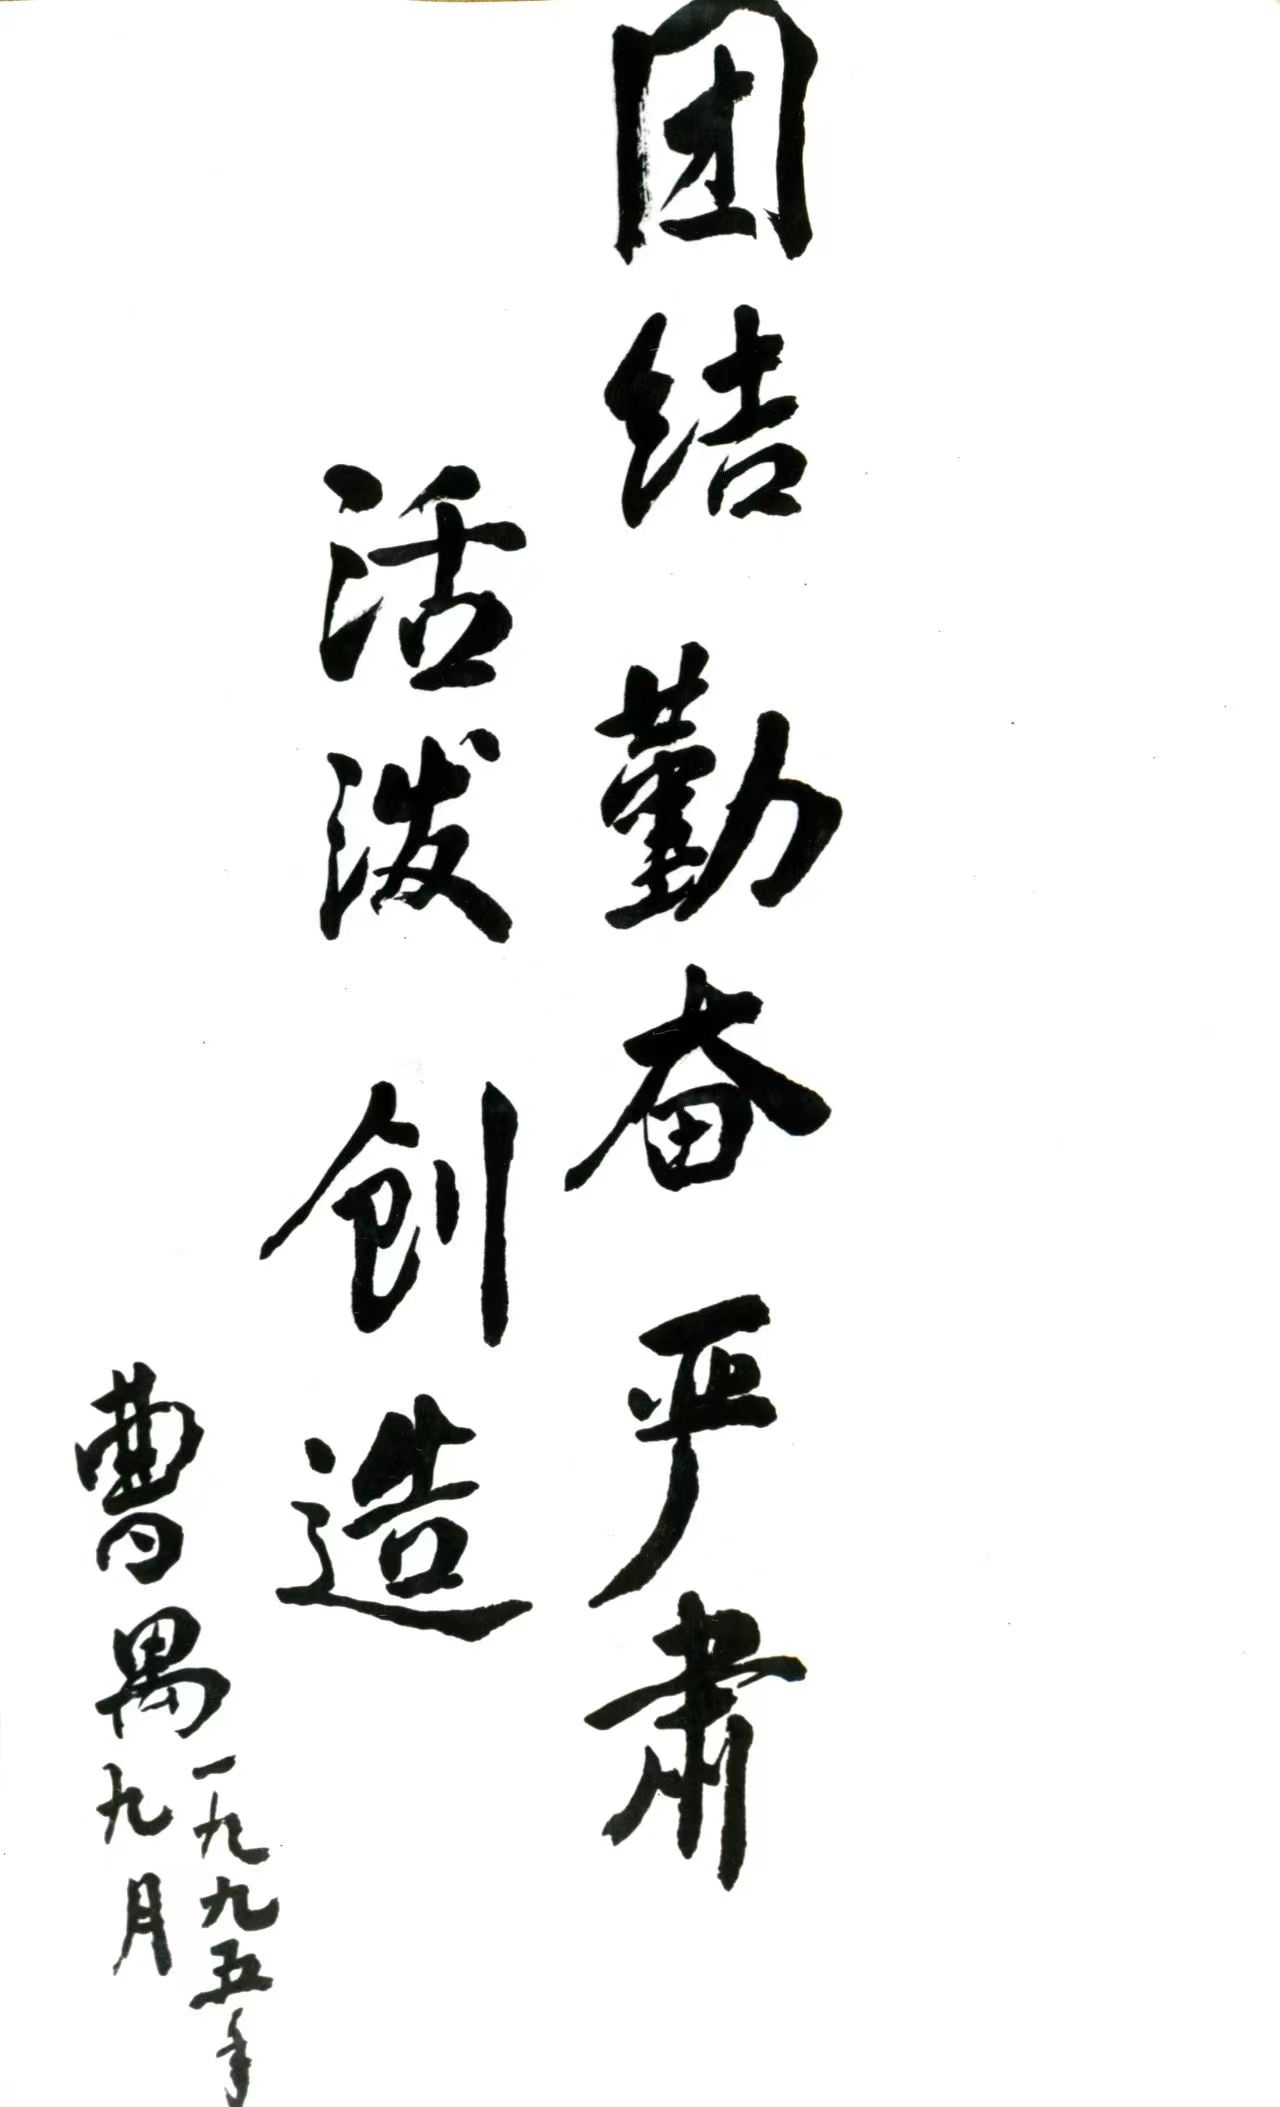 团结 勤奋 严肃
活泼 创造
曹禺
一九九五年
九月